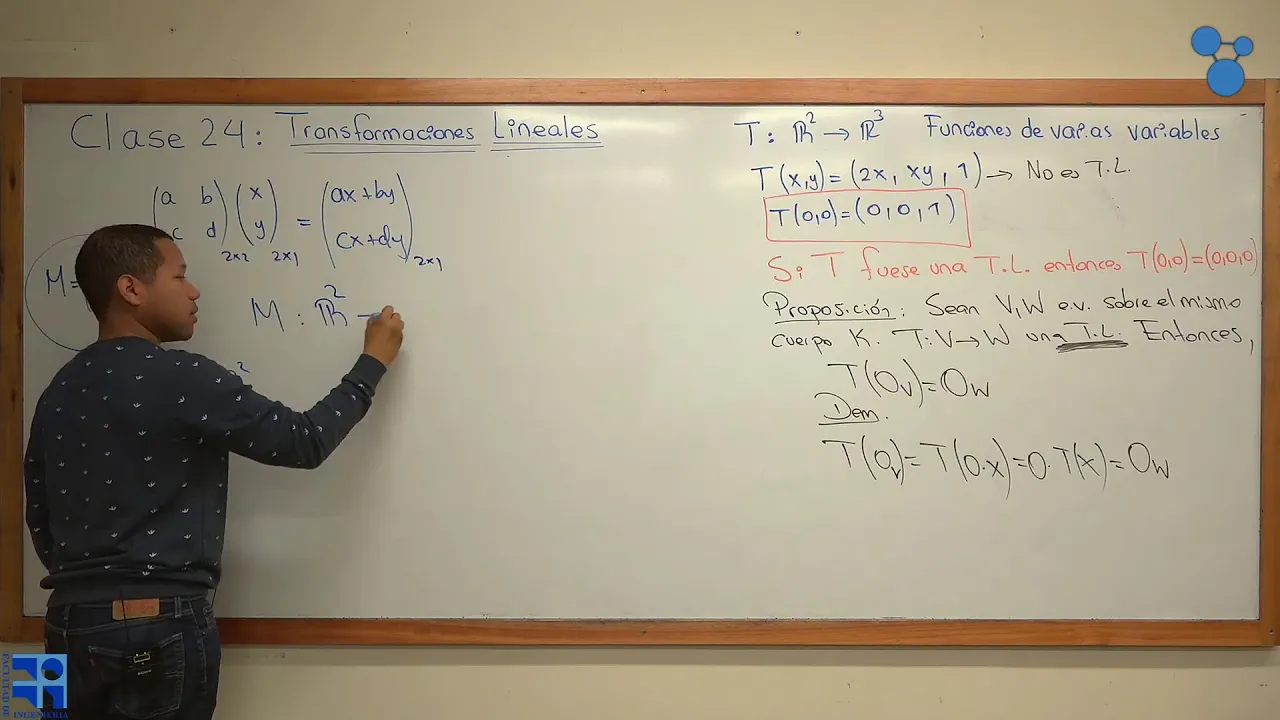 Clase 24: Transformaciones Lineales
(a b) (x) = (ax+by)
c d) (y) (cx+dy)
2x2 2x1 2x1
M=
M : ℝ² –
2
T: ℝ² → ℝ³ Funciones de varias variables
T(x,y)=(2x, xy, 1) → No es T.L.
T(0,0)=(0,0,1)
Si T fuese una T.L. entonces T(0,0)=(0,0,0)
Proposición: Sean V,W e.v. sobre el mismo
cuerpo K. T:V→W una T.L. Entonces,
T(0ᵥ)=0w
Dem.
T(0ᵥ)=T(0·x)=0·T(x)=0w
FACULTAD DE
INGENIERIA